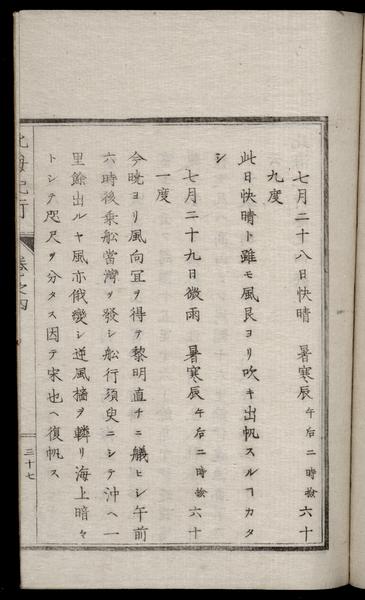 七月二十八日快晴　暑寒辰午后二時撿六十
九度
此日快晴ト雖モ風艮ヨリ吹キ出帆スルヿカタ
シ
七月二十九日微雨　暑寒辰午后二時撿六十
一度
今曉ヨリ風向宜ヲ得テ黎明直チニ艤ヒシ午前
六時後乗船當灣ヲ發シ船行須臾ニシテ沖ヘ一
里餘出ルヤ風亦俄變シ逆風檣ヲ轉リ海上暗々
トシテ咫尺ヲ分タス因テ宗也ヘ復帆ス
北海紀行
卷之四
三十七